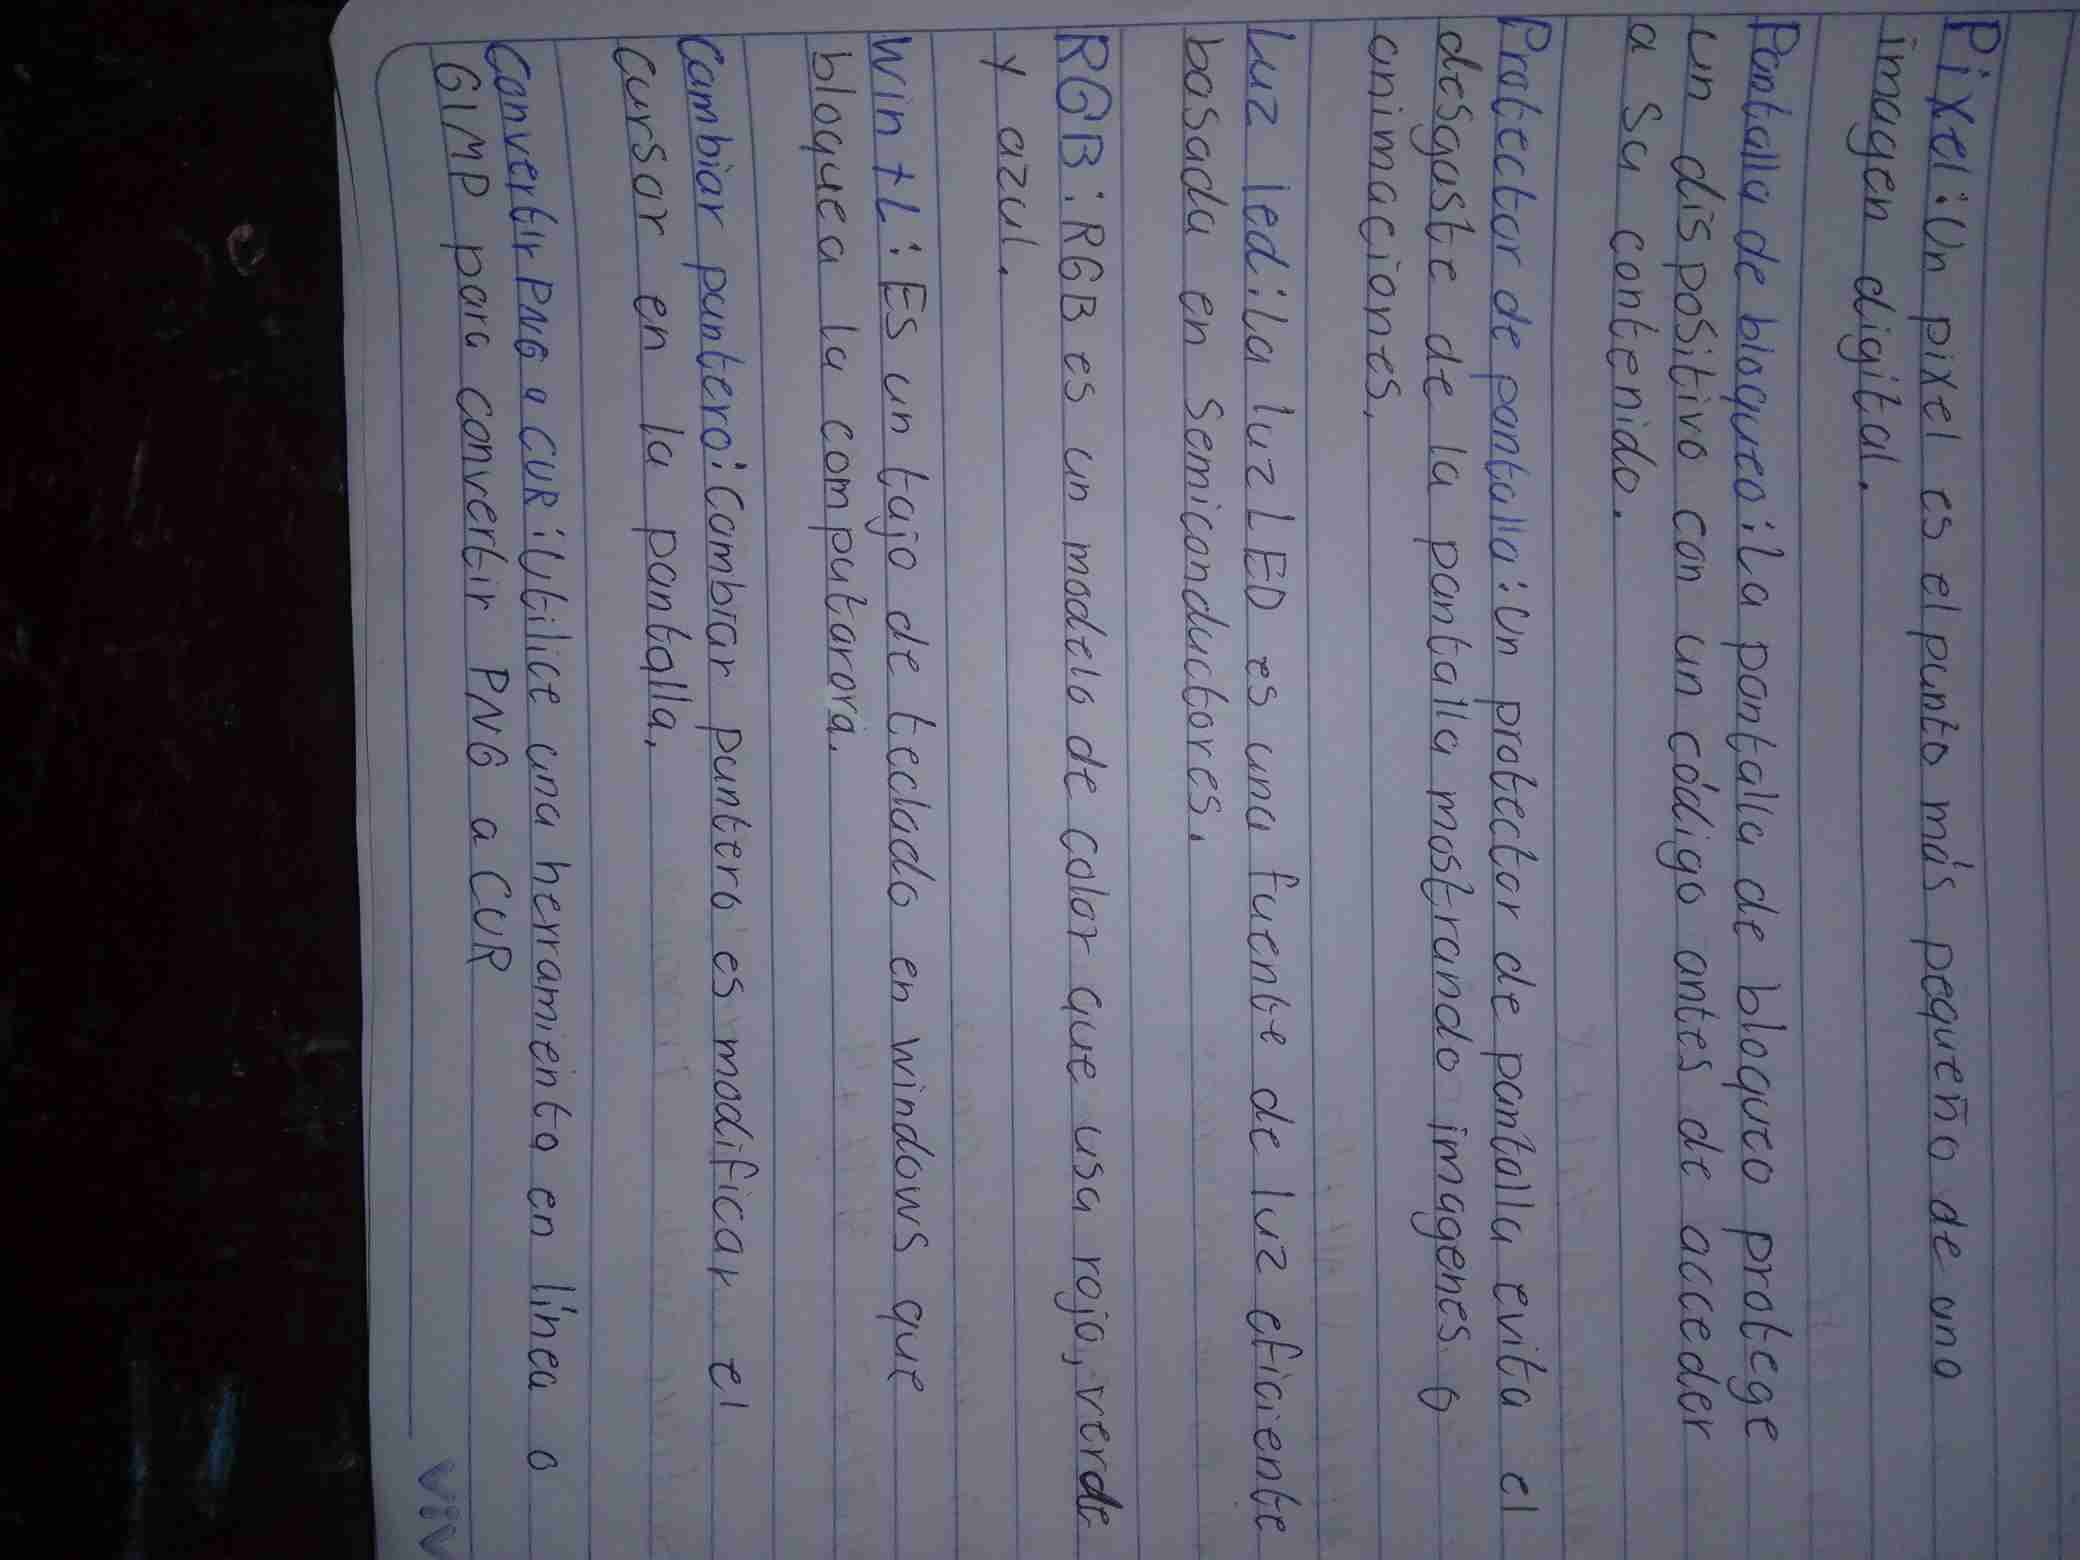 Pixel: Un pixel es el punto más pequeño de una
imagen digital.
Pantalla de bloqueo: La pantalla de bloqueo protege
un dispositivo con un código antes de acceder
a su contenido.
Protector de pantalla: Un protector de pantalla evita el
desgaste de la pantalla mostrando imagenes o
animaciones.
Luz led: La luz LED es una fuente de luz eficiente
basada en semiconductores.
RGB: RGB es un modelo de color que usa rojo, verde
y azul.
Win + L: Es un tajo de teclado en windows que
bloquea la computarora.
Cambiar puntero: Cambiar puntero es modificar el
cursor en la pantalla.
Convertir PNG a CUR: Utilice una herramienta en línea o
GIMP para convertir PNG a CUR
viv